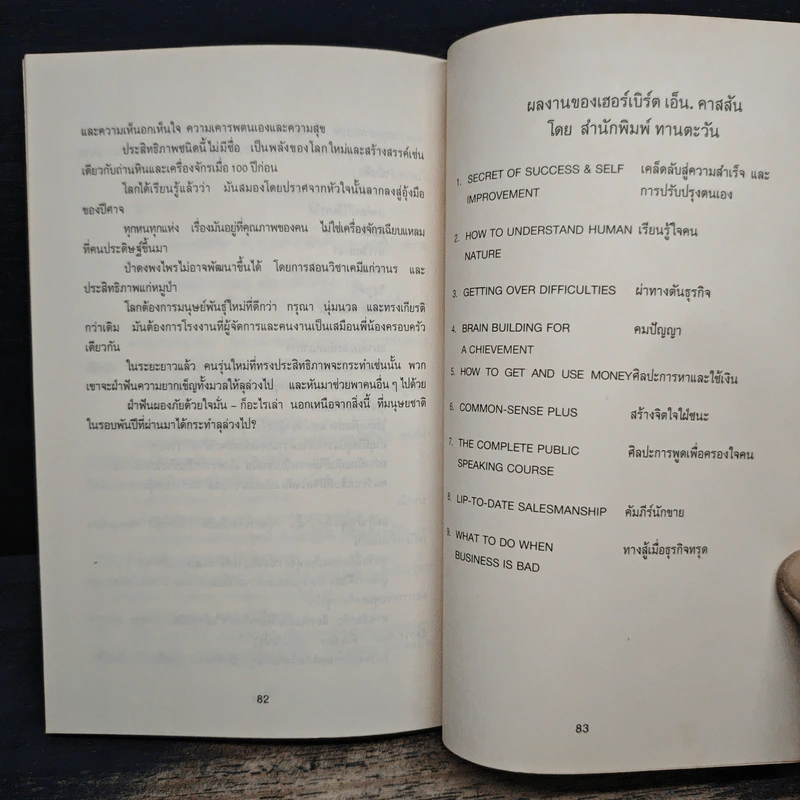 และความเห็นอกเห็นใจ ความเคารพตนเองและความสุข
ประสิทธิภาพชนิดนี้ไม่มีชื่อ เป็นพลังของโลกใหม่และสร้างสรรค์เช่น
เดียวกับถ่านหินและเครื่องจักรเมื่อ 100 ปีก่อน
โลกได้เรียนรู้แล้วว่า มันสมองโดยปราศจากหัวใจนั้นลากลงสู่อุ้งมือ
ของปีศาจ
ทุกหนทุกแห่ง เรื่องมันอยู่ที่คุณภาพของคน ไม่ใช่เครื่องจักรเฉียบแหลม
ที่คนประดิษฐ์ขึ้นมา
ป่าดงพงไพรไม่อาจพัฒนาขึ้นได้ โดยการสอนวิชาเคมีแก่วานร และ
ประสิทธิภาพแก่หมูป่า
โลกต้องการมนุษย์พันธุ์ใหม่ที่ดีกว่า กรุณา นุ่มนวล และทรงเกียรติ
กว่าเดิม มันต้องการโรงงานที่ผู้จัดการและคนงานเป็นเสมือนพี่น้องครอบครัว
เดียวกัน
ในระยะยาวแล้ว คนรุ่นใหม่ที่ทรงประสิทธิภาพจะกระทำเช่นนั้น พวก
เขาจะฝ่าฟันความยากเข็ญทั้งมวลให้ลุล่วงไป และหันมาช่วยพาคนอื่น ๆ ไปด้วย
ฝ่าฟันผองภัยด้วยใจมั่น – ก็อะไรเล่า นอกเหนือจากสิ่งนี้ ที่มนุษยชาติ
ในรอบพันปีที่ผ่านมาได้กระทำลุล่วงไป?
82
ผลงานของเฮอร์เบิร์ต เอ็น. คาสสัน
โดย สำนักพิมพ์ ทานตะวัน
1. SECRET OF SUCCESS & SELF เคล็ดลับสู่ความสำเร็จ และ
IMPROVEMENT การปรับปรุงตนเอง
2. HOW TO UNDERSTAND HUMAN เรียนรู้ใจคน
NATURE
3. GETTING OVER DIFFICULTIES ผ่าทางตันธุรกิจ
4. BRAIN BUILDING FOR คมปัญญา
A CHIEVEMENT
5. HOW TO GET AND USE MONEY ศิลปะการหาและใช้เงิน
6. COMMON-SENSE PLUS สร้างจิตใจใฝ่ชนะ
7. THE COMPLETE PUBLIC ศิลปะการพูดเพื่อครองใจคน
SPEAKING COURSE
8. LIP-TO-DATE SALESMANSHIP คัมภีร์นักขาย
9. WHAT TO DO WHEN ทางสู้เมื่อธุรกิจทรุด
BUSINESS IS BAD
83